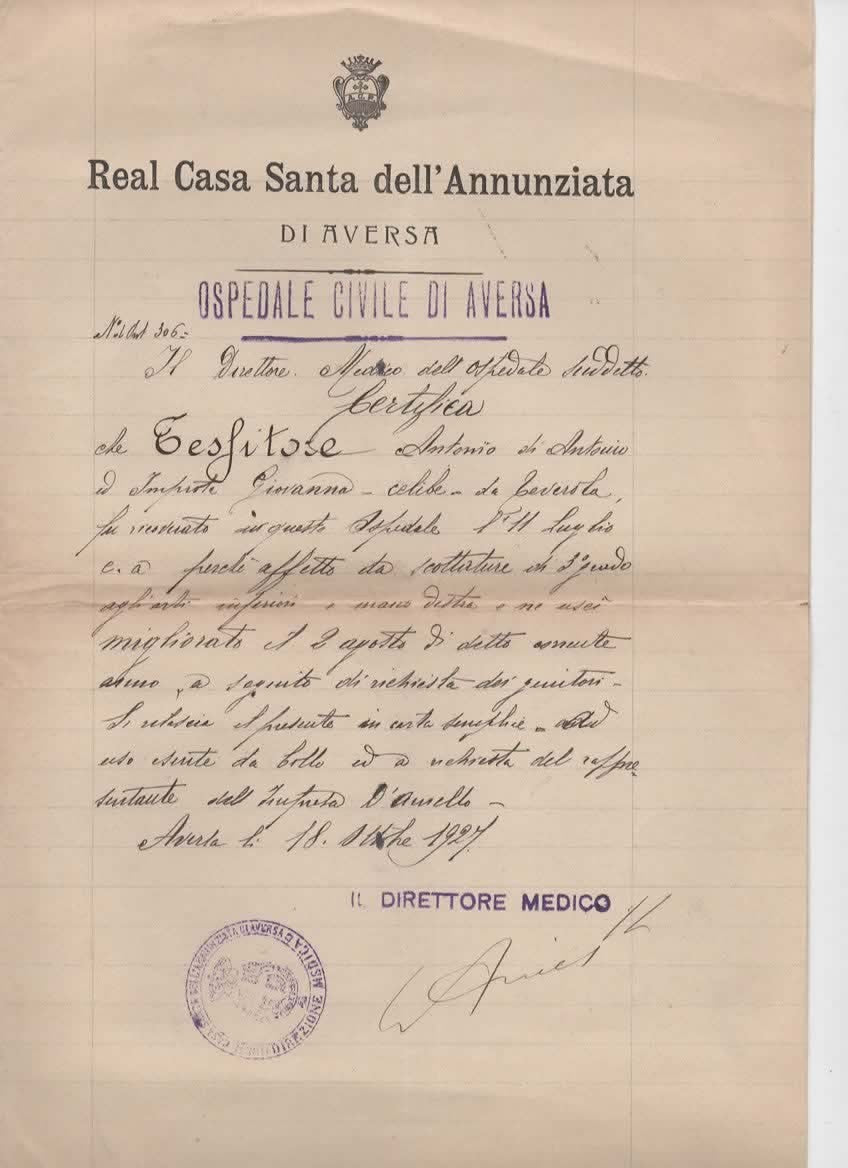 Real Casa Santa dell'Annunziata
DI AVERSA
OSPEDALE CIVILE DI AVERSA
306
Il Direttore Medico dell'Ospedale suddetto
Certifica
che Tessitore Antonio di Antonio
ed Improta Giovanna - celibe - da Teverola,
fu ricoverato in questo Ospedale l'11 Luglio
c. a perchè affetto da scottature di 3° grado
agli arti inferiori e mano destra e ne uscì
migliorato il 2 agosto di detto corrente
anno, a seguito di richiesta dei genitori -
Si rilascia il presente in carta semplice - ad
uso esente da bollo ed a richiesta del rappre-
sentante dell'Impresa
Aversa li 18. 1927
IL DIRETTORE MEDICO